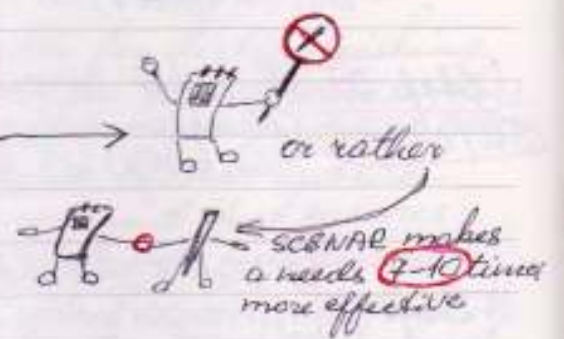 or rather
SCENAR makes
a needs 7-10 times
more effective